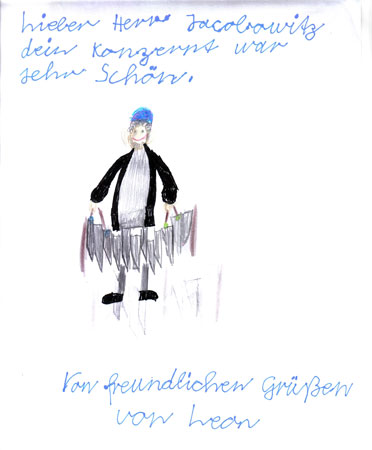 Lieber Herr Jacobowitz
dein Konzernt war
sehr Schön.
Von freundlichen Grüßen
von Leon